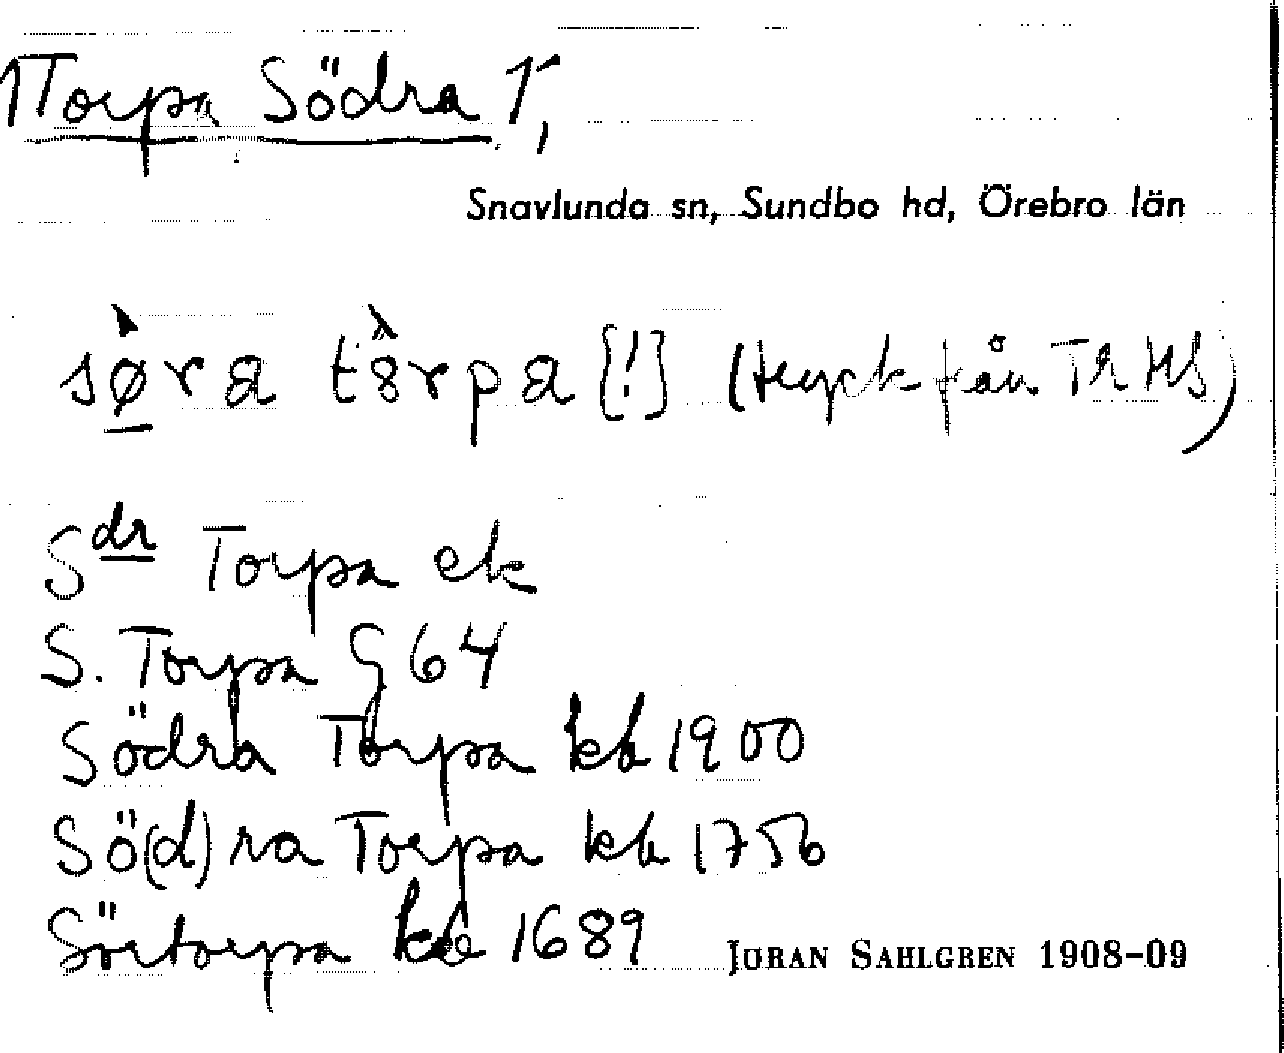 Torpa Södra
Snavlunda sn, Sundbo hd, Örebro län
sø̀ra tȣ̀rpa [!] (tryck från TRHS)
Sdr Torpa ek
S. Torpa G 64
Södra Torpa kb 1900
Sö(d)ra Torpa kb 1756
Sörtorpa kb 1689
JÖRAN SAHLGREN 1908-09